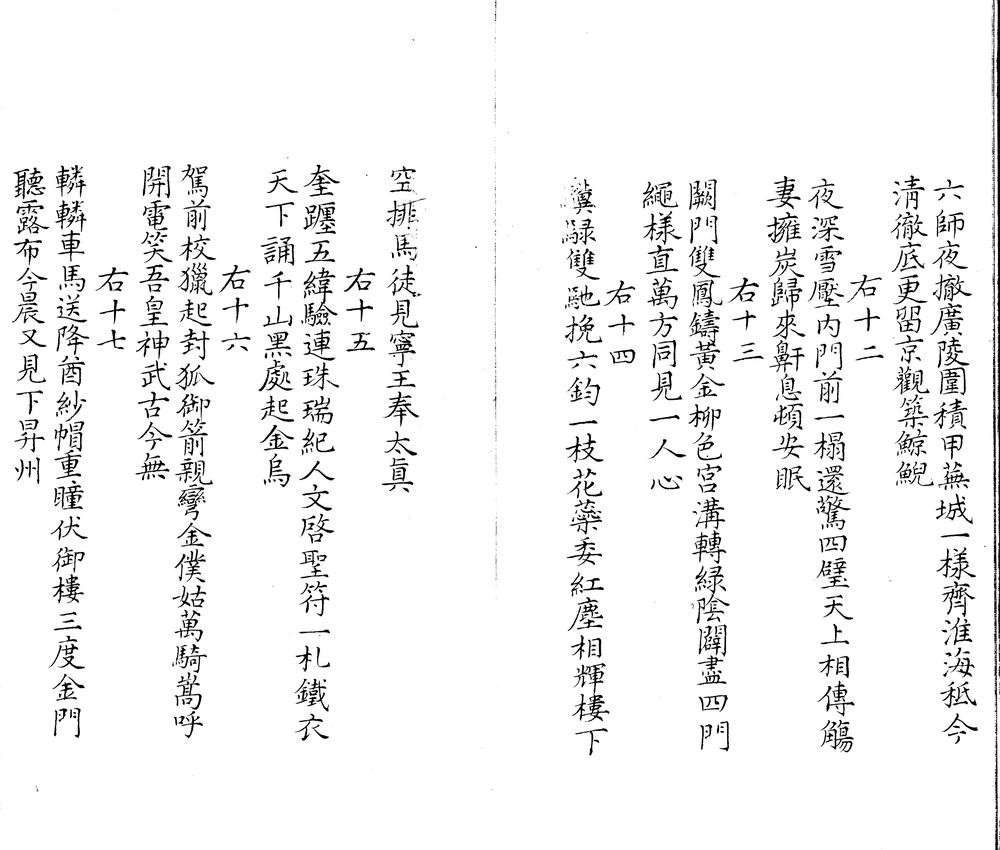 六師夜撤廣陵圍積甲蕪城一樣齊淮海秪今
淸徹底更留京觀築鯨鯢
右十二
夜深雪壓內門前一榻還驚四壁天上相傳觴
妻擁炭歸來鼾息頓安眠
右十三
闕門雙鳳鑄黃金柳色宮溝轉緑陰闢盡四門
繩樣直萬方同見一人心
右十四
冀騄雙馳挽六鈞一枝花蘂委紅塵相輝樓下
空排馬徒見寧王奉太眞
右十五
奎躔五緯驗連珠瑞紀人文啓聖符一札鐵衣
天下誦千山黑處起金烏
右十六
駕前校獵起封狐御箭親彎金僕姑萬騎嵩呼
開電笑吾皇神武古今無
右十七
轔轔車馬送降酋紗帽重瞳伏御樓三度金門
聽露布今晨又見下昇州